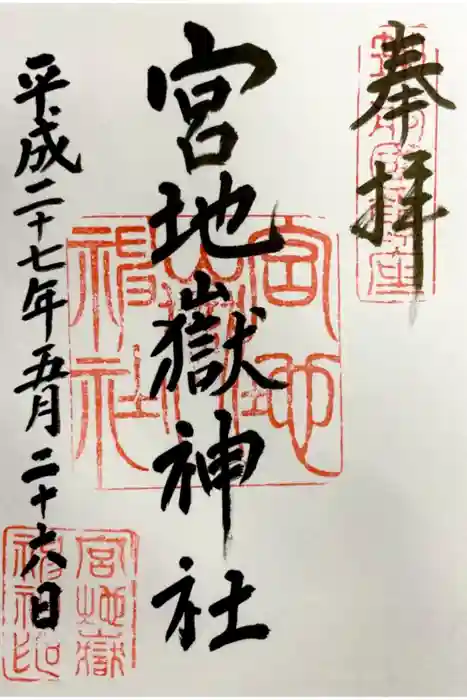 奉拝
宮地嶽神社
平成二十七年五月二十六日
宮地嶽神社
宮地嶽
神社印